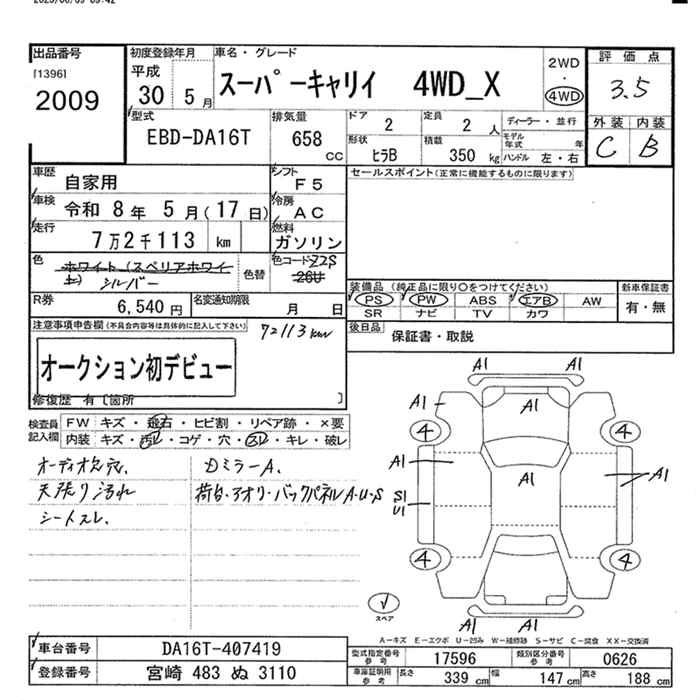 出品番号
[1396]
2009
初度登録年月
平成
30 5月
車名・グレード
スーパーキャリイ 4WD_X
2WD
・
4WD
評価点
3.5
外装 内装
C B
型式
EBD-DA16T
排気量
658
CC
ドア
2
定員
2 人
ディーラー・並行
モデル年式 年
形状
ヒラB
積載
350 kg
ハンドル 左・右
車歴
自家用
シフト
F5
セールスポイント(正常に機能するものに限ります)
車検
令和 8年 5月(17日)
冷房
AC
走行
7万2千113 km
燃料
ガソリン
色
ホワイト(スペリアホワイト)
シルバー
色替
色コード
Z2S
26U
装備品 (純正品に限り○をつけてください)
PS PW ABS エアB AW
SR ナビ TV カワ
新車保証書
有・無
R券
6,540 円
名変通知期限
月 日
後日品
保証書・取説
注意事項申告欄(不具合内容等は具体的に記入して下さい)
72113km
オークション初デビュー
修復歴 有〔箇所 〕
検査員記入欄
FW キズ・飛石・ヒビ割・リペア跡・×要
内装 キズ・汚レ・コゲ・穴・スレ・キレ・破レ
オーディオ欠穴.
天張り汚れ
シートスレ.
DミラーA.
荷台・アオリ・バックパネルA・U・S
A1
A1
A1
A1
4
4
A1
A1
A1
S1
U1
4
4
A1
A1
スペア
A-キズ E-エクボ U-凹み W-補修跡 S-サビ C-腐食 XX-交換済
車台番号
DA16T-407419
型式指定番号
参考
17596
類別区分番号
参考
0626
登録番号
宮崎 483 ぬ 3110
車庫証明用
参考
長さ 339 cm
幅 147 cm
高さ 188 cm